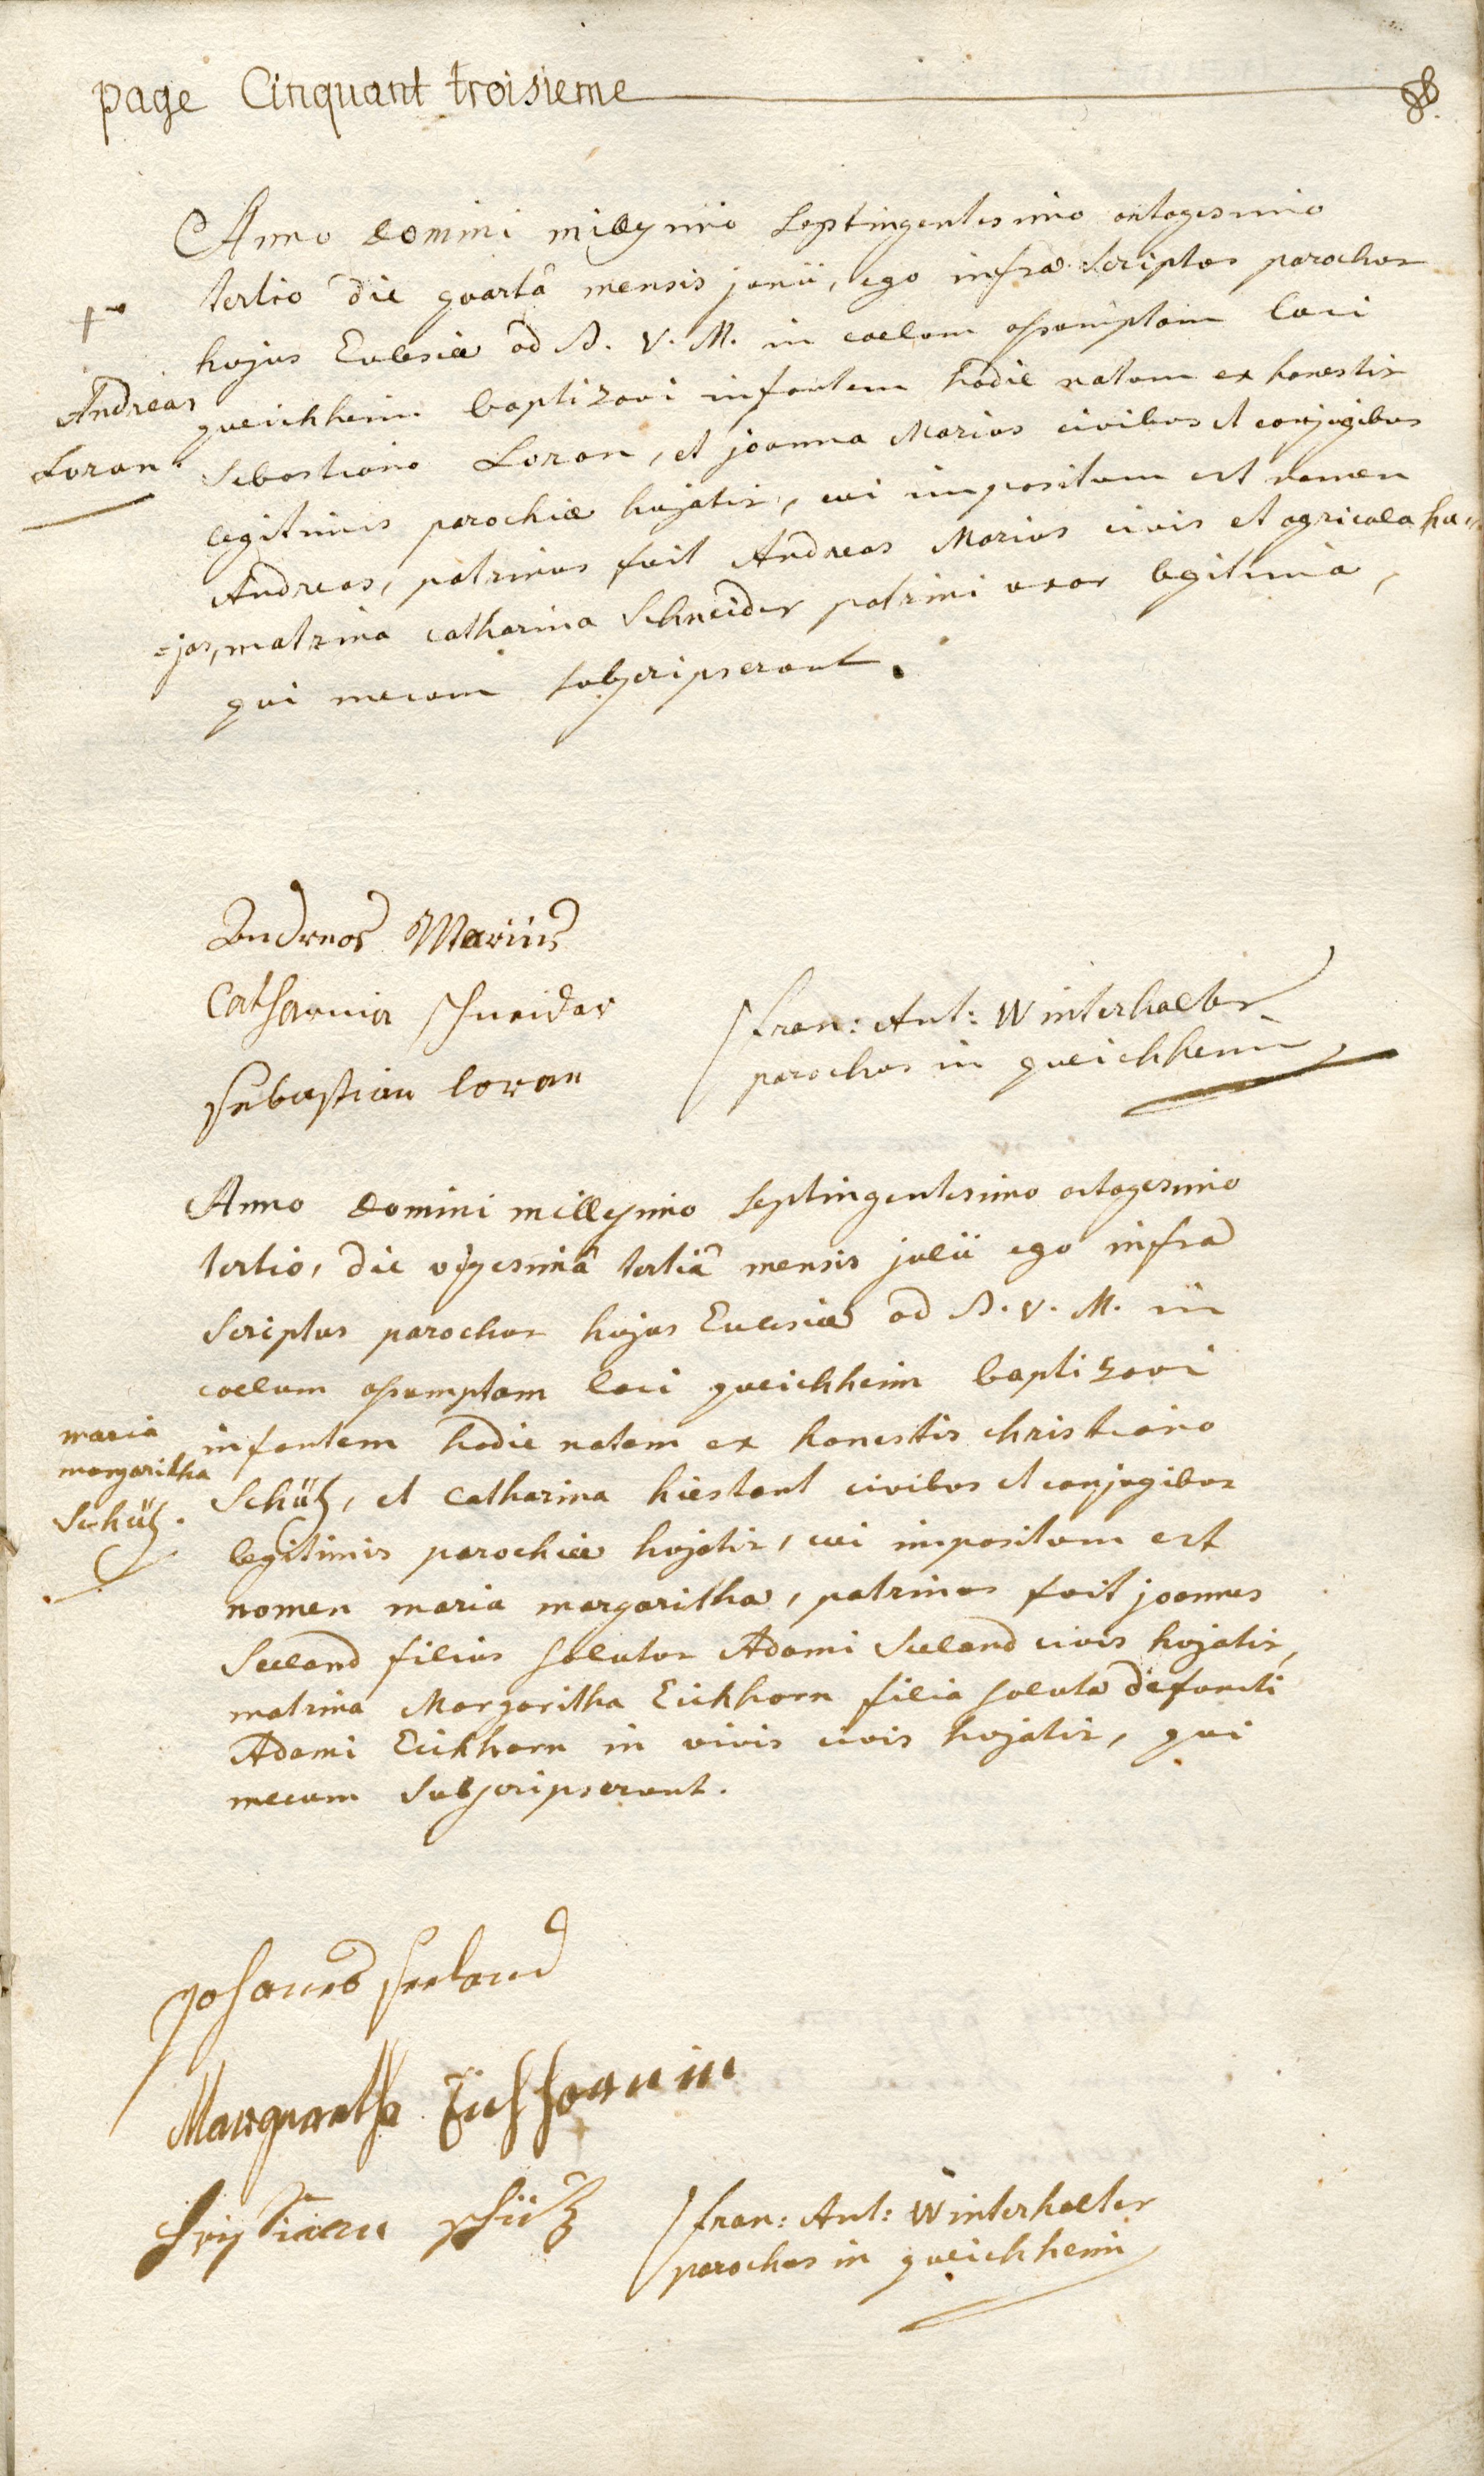 page Cinquant troisieme
Anno Domini millesimo septingentesimo octogesimo
tertio die quartâ mensis junii, ego infra scriptus parochus
hujus Ecclesiæ ad B. V. M. in coelum assumptam loci
queichheim baptizavi infantem hodie natum ex honestis
Andreas
Loran.
Sebastiano Loran, et joanna Marius civibus et conjugibus
legitimis parochiæ hujatis, cui impositum est nomen
Andreas, patrinus fuit Andreas Marius civis et agricola hu=
=jas, matrina catharina Schneider patrini uxor legitima,
qui mecum subscripserunt.
Andreas Marius
Catharina Schneider
Sebastian loran
fran: Ant: Winterhalter
parochus in queichheim
Anno Domini millesimo septingentesimo octogesimo
tertio, die vigesimâ tertiâ mensis julii ego infra
scriptus parochus hujus Ecclesiæ ad B. V. M. in
coelum assumptam loci queichheim baptizavi
infantem hodie natam ex honestis christiano
maria
margaritha
Schütz.
Schütz, et catharina hiestant civibus et conjugibus
legitimis parochiæ hujatis, cui impositum est
nomen maria margaritha, patrinus fuit joannes
Seeland filius solutus Adami Seeland civis hujatis,
matrina Margaritha Eichhorn filia soluta defuncti
Adami Eichhorn in vivis civis hujatis, qui
mecum subscripserunt.
Johanes Seeland
Margaretha Eichhornin
Christian Schütz
fran: Ant: Winterhalter
parochus in queichheim